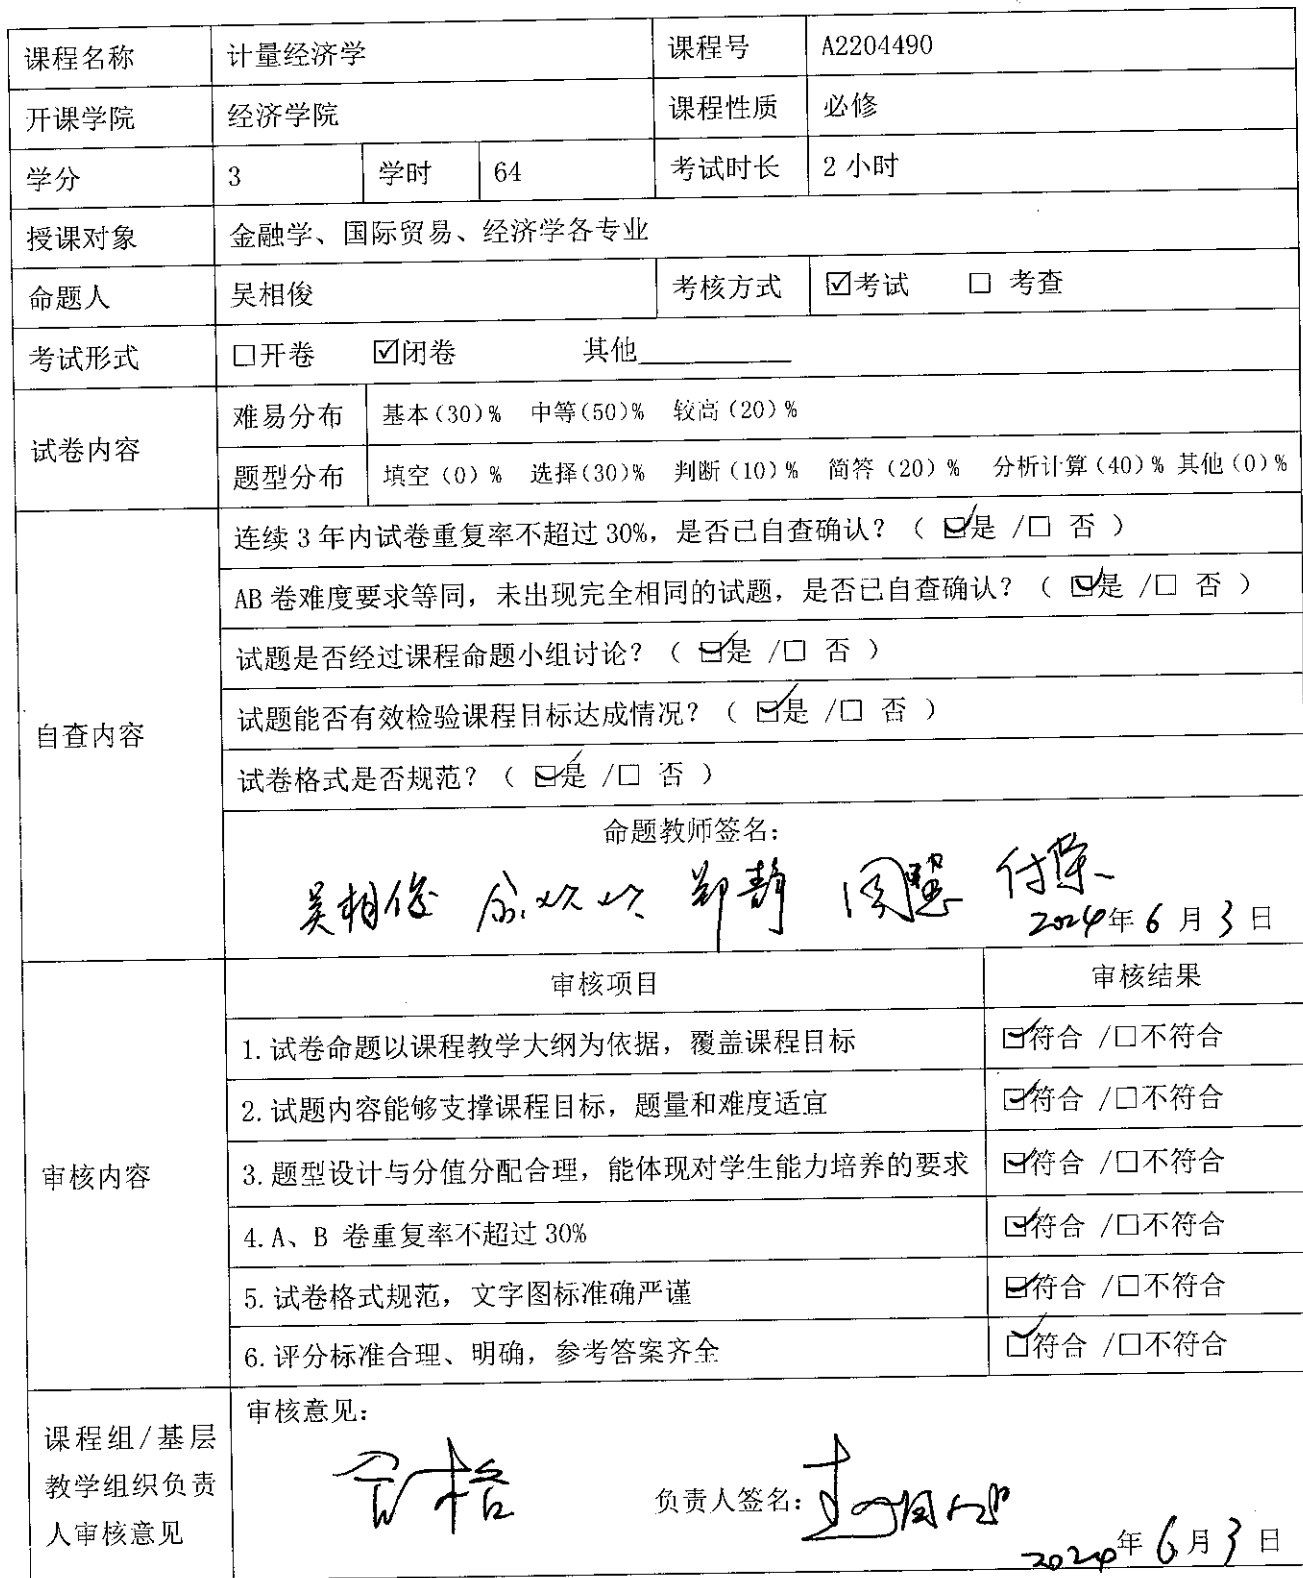 课程名称 计量经济学 课程号 A2204490
开课学院 经济学院 课程性质 必修
学分 3 学时 64 考试时长 2 小时
授课对象 金融学、国际贸易、经济学各专业
命题人 吴相俊 考核方式 ☑考试 □ 考查
考试形式 □开卷 ☑闭卷 其他________
试卷内容 难易分布 基本(30)% 中等(50)% 较高(20)%
题型分布 填空(0)% 选择(30)% 判断(10)% 简答(20)% 分析计算(40)% 其他(0)%
自查内容
连续 3 年内试卷重复率不超过 30%，是否已自查确认？（ ☑是 /□ 否 ）
AB 卷难度要求等同，未出现完全相同的试题，是否已自查确认？（ ☑是 /□ 否 ）
试题是否经过课程命题小组讨论？（ ☑是 /□ 否 ）
试题能否有效检验课程目标达成情况？（ ☑是 /□ 否 ）
试卷格式是否规范？（ ☑是 /□ 否 ）
命题教师签名：
吴相俊 郑静 周慧
2024年 6 月 3 日
审核内容
审核项目 审核结果
1.试卷命题以课程教学大纲为依据，覆盖课程目标 ☑符合 /□不符合
2.试题内容能够支撑课程目标，题量和难度适宜 ☑符合 /□不符合
3.题型设计与分值分配合理，能体现对学生能力培养的要求 ☑符合 /□不符合
4.A、B 卷重复率不超过 30% ☑符合 /□不符合
5.试卷格式规范，文字图标准确严谨 ☑符合 /□不符合
6.评分标准合理、明确，参考答案齐全 ☑符合 /□不符合
课程组/基层
教学组织负责
人审核意见
审核意见：
合格 负责人签名：
2024年 6 月 3 日